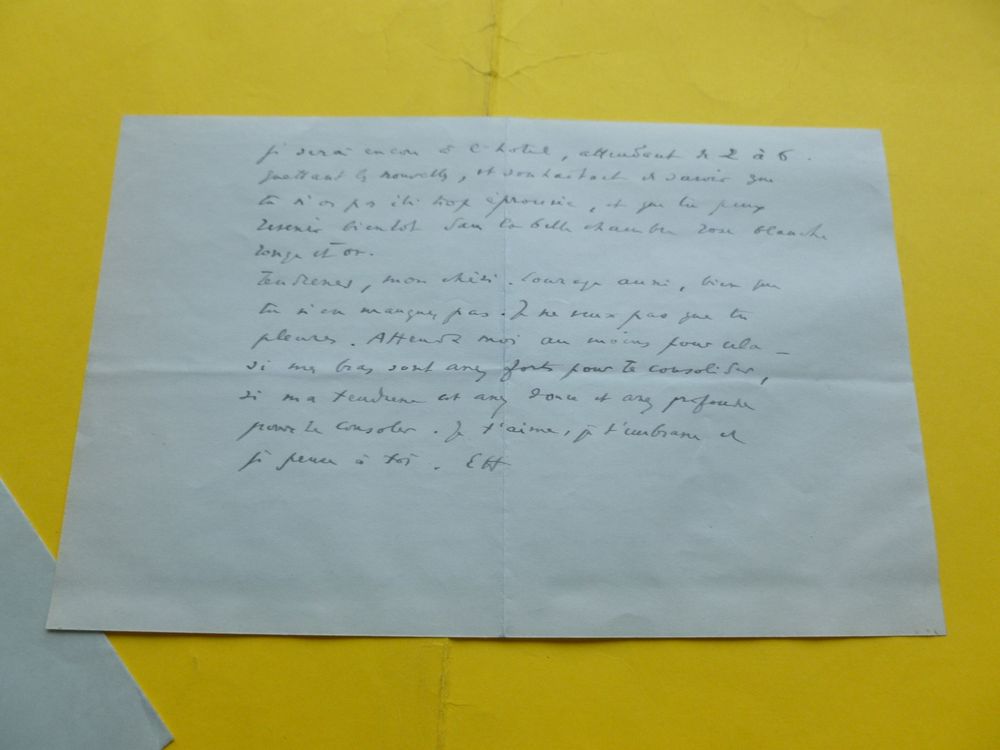 je serai encore à l'hotel, attendant de 2 à 6.
guettant les nouvelles, et souhaitant de savoir que
tu n'as pas été trop éprouvée, et que tu peux
revenir bientot dans la belle chambre rose blanche
rouge et or.
Tendresses, mon chéri. Courage aussi, bien que
tu n'en manques pas. Je ne veux pas que tu
pleures. Attends moi au moins pour cela –
si mes bras sont assez forts pour te consolider,
si ma tendresse est assez douce et assez profonde
pour te consoler. Je t'aime, je t'embrasse et
je pense à toi. EH